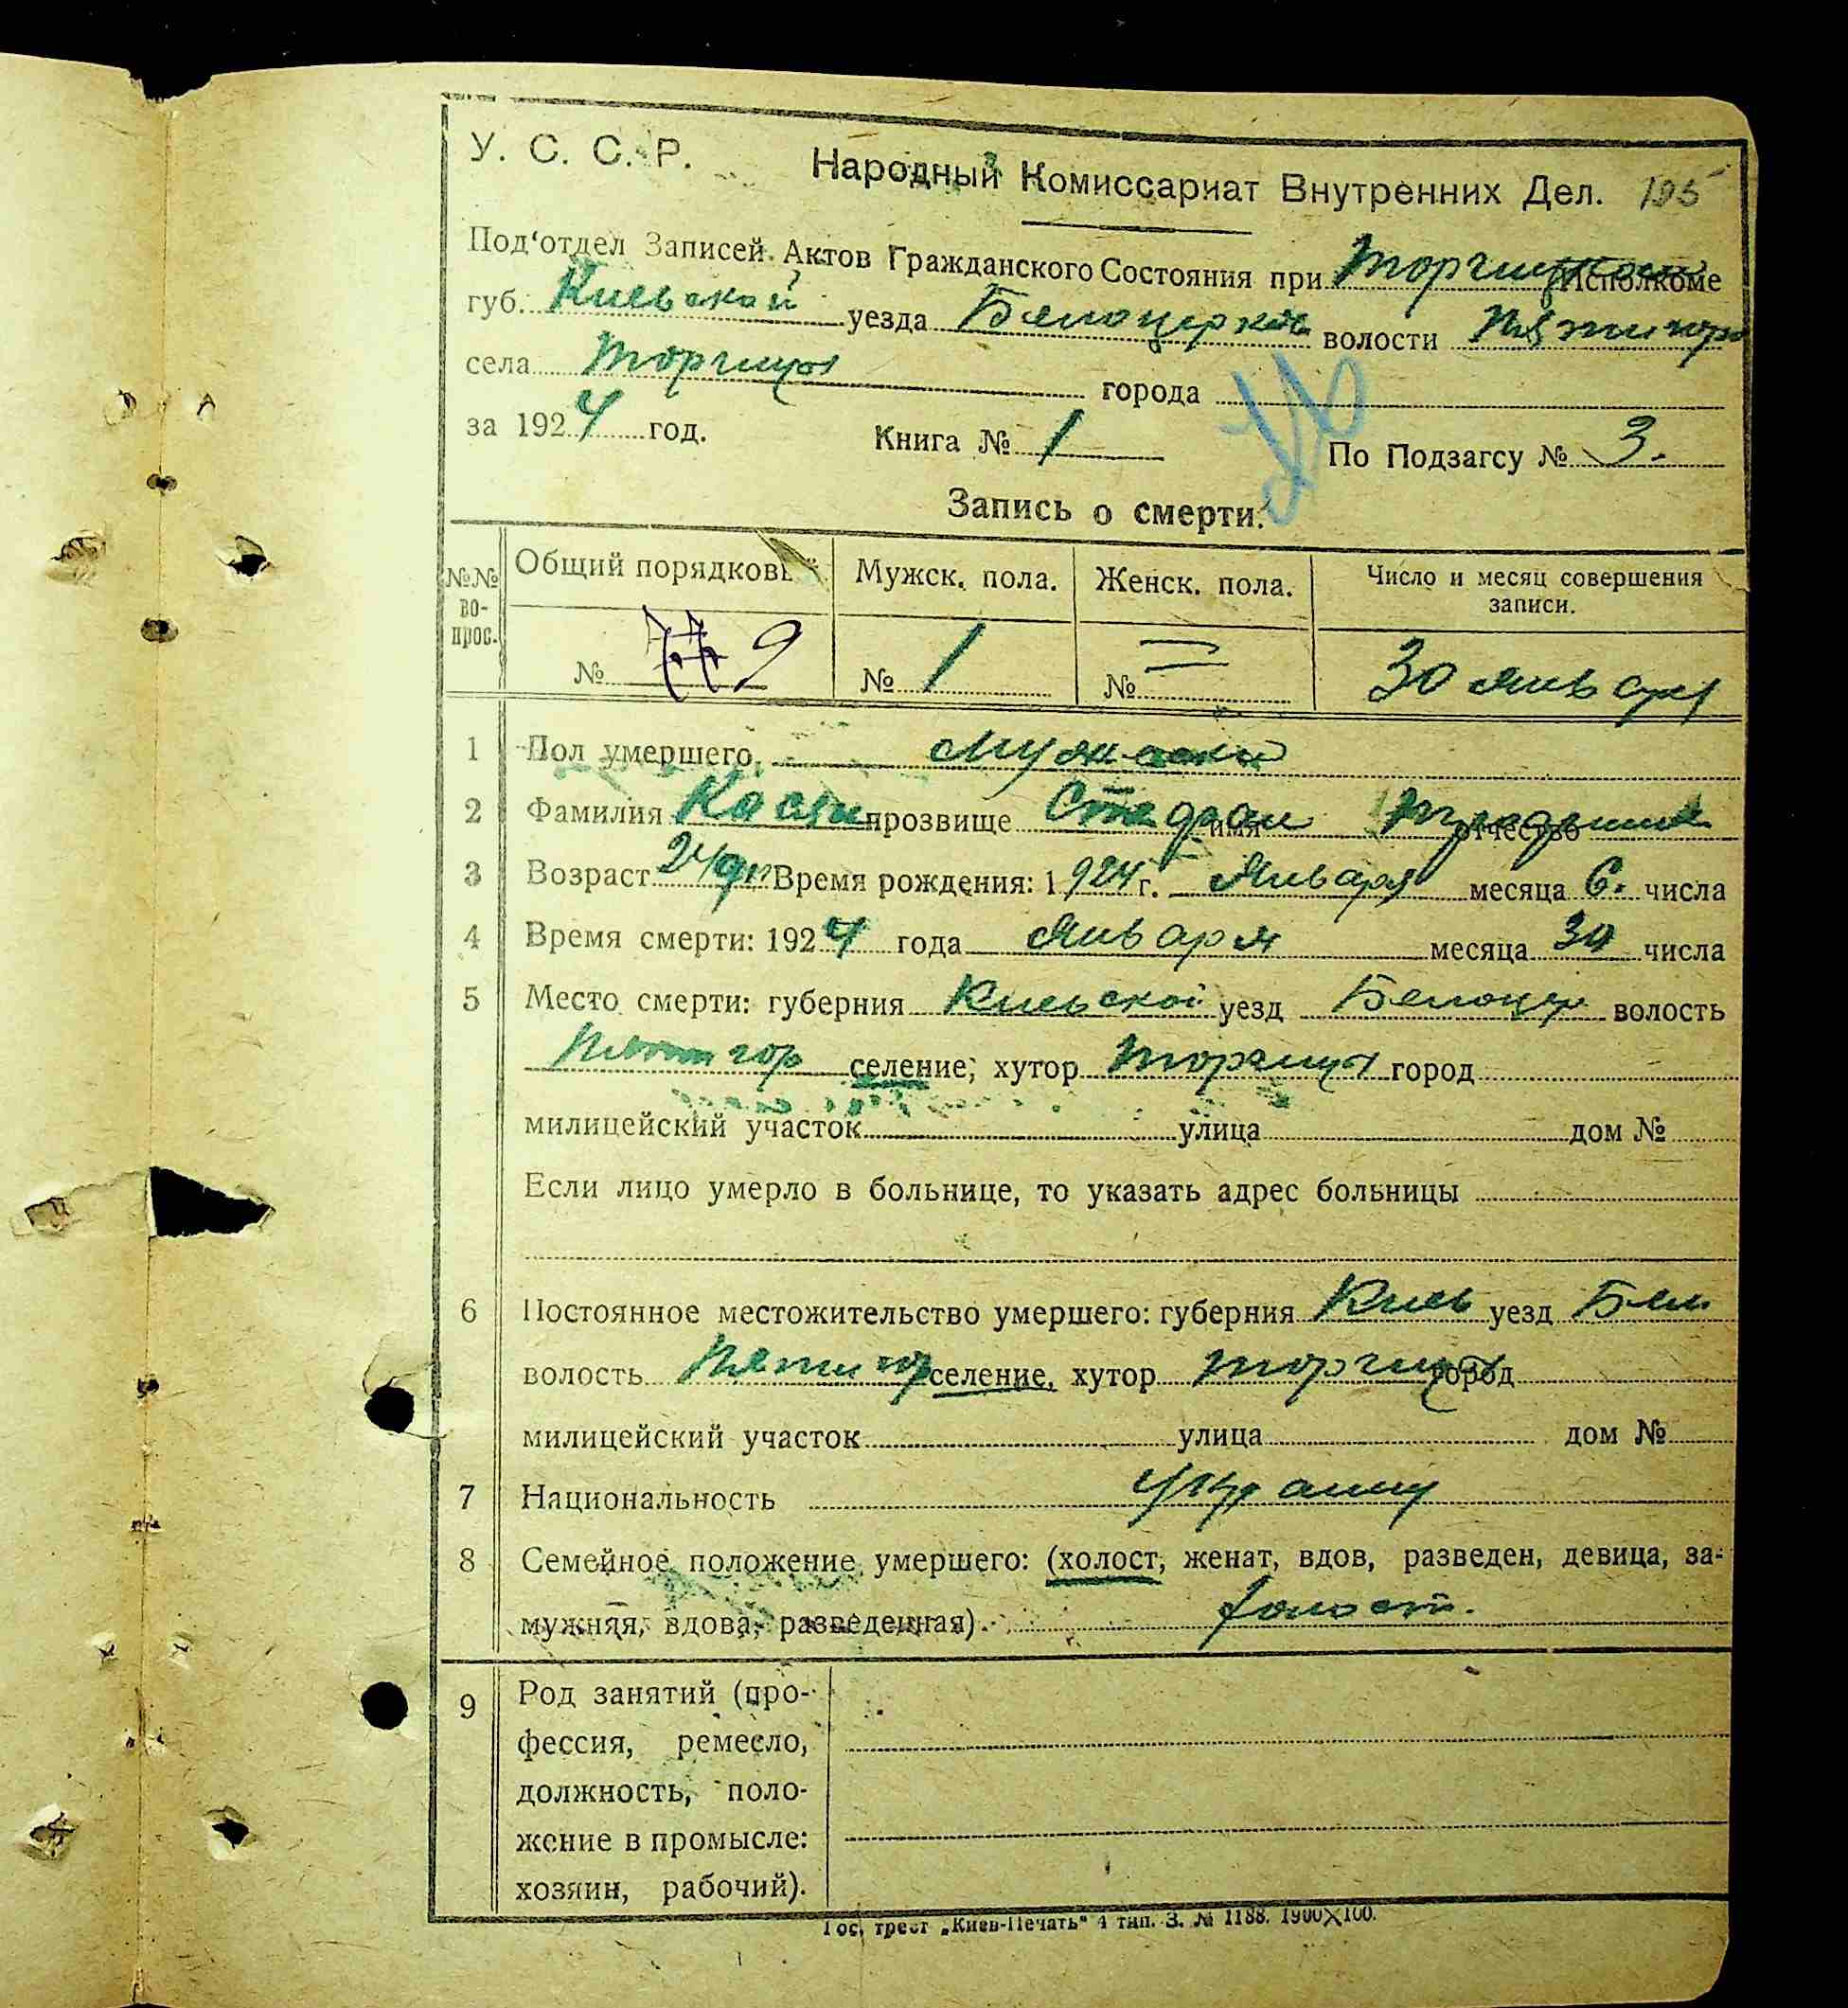 У. С. С. Р. Народный Комиссариат Внутренних Дел. 195
Под‘отдел Записей Актов Гражданского Состояния при Исполкоме
губ. Киевской уезда Белоцерков волости Пятигор
села Торчица города
за 1924 год. Книга № 1 По Подзагсу № 3.
Запись о смерти.
№№ во- прос. Общий порядковый Мужск. пола. Женск. пола. Число и месяц совершения записи.
№ 9 № 1 № = 30 января
1 Пол умершего мужской
2 Фамилия прозвище имя отчество
3 Возраст 24 дн Время рождения: 1924 г. Января месяца 6. числа
4 Время смерти: 1924 года Января месяца 30 числа
5 Место смерти: губерния Киевской уезд Белоцер волость
Пятигор селение; хутор Торчица город
милицейский участок улица дом №
Если лицо умерло в больнице, то указать адрес больницы
6 Постоянное местожительство умершего: губерния Киев уезд Бел
волость Пятигор селение, хутор Торчица город
милицейский участок улица дом №
7 Национальность
8 Семейное положение умершего: (холост, женат, вдов, разведен, девица, за-
мужняя, вдова, разведенная). холост.
9 Род занятий (про-
фессия, ремесло,
должность, поло-
жение в промысле:
хозяин, рабочий).
Гос. трест „Киев-Печать“ 4 тип. З. № 1188. 1900X100.